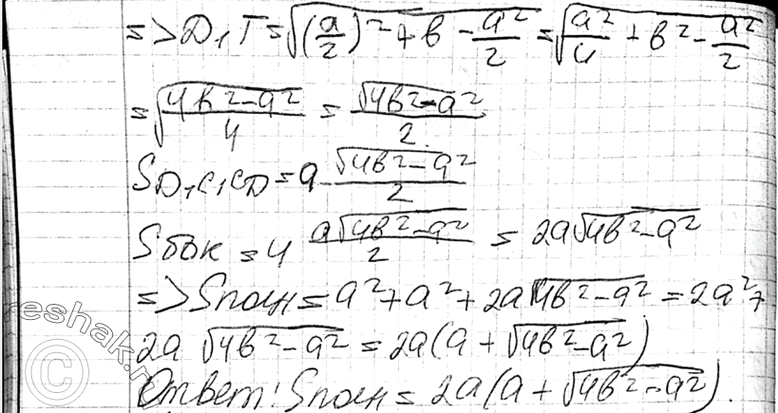 => D₁T = √((a/2)² + b - a²/2) = √(a²/4 + b² - a²/2)
= √((4b² - a²)/4) = √(4b² - a²)/2
S D₁C₁CD = a · √(4b² - a²)/2
Sбок = 4 a√(4b² - a²)/2 = 2a√(4b² - a²)
=> Sполн = a² + a² + 2a√(4b² - a²) = 2a² +
2a √(4b² - a²) = 2a(a + √(4b² - a²))
Ответ: Sполн = 2a(a + √(4b² - a²)).
reshak.ru
©